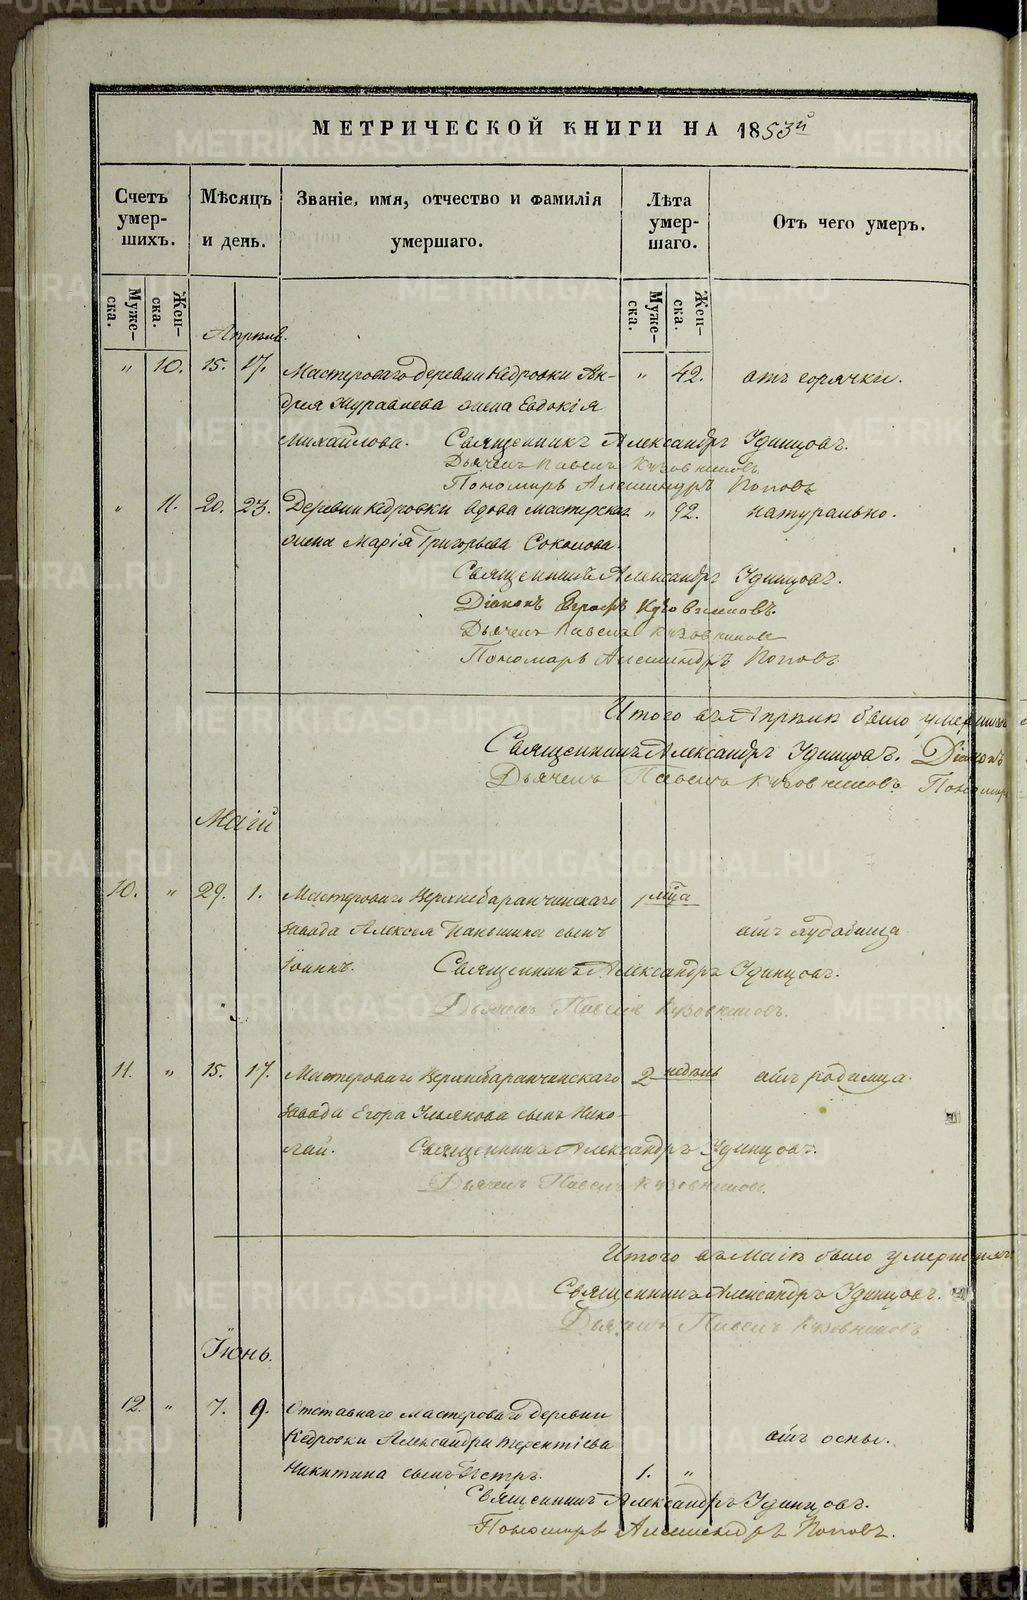 МЕТРИЧЕСКОЙ КНИГИ НА 1853й
Счетъ умер-шихъ.
Мѣсяцъ и день.
Званіе, имя, отчество и фамилія умершаго.
Лѣта умер-шаго.
Отъ чего умеръ.
Муже-ска. Жен-ска.
Муже-ска. Жен-ска.
Апрѣль.
" 10. 15. 17. Мастероваго деревни Кедровки Ан- " 42. отъ горячки.
дрея Журавлева жена Евдокія
Михайлова. Священникъ Александръ Удинцовъ.
Дьячекъ Павелъ Кузовниковъ
Пономарь Александръ Поповъ
" 11. 20. 23. Деревни Кедровки вдова мастерская " 92. натурально.
жена Марія Григорьева Соколова.
Священникъ Александръ Удинцовъ.
Діаконъ Кузовниковъ.
Дьячекъ Павелъ Кузовниковъ
Пономарь Александръ Поповъ.
Итого въ Апрѣлѣ было умершихъ
Священникъ Александръ Удинцовъ. Діаконъ
Дьячекъ Павелъ Кузовниковъ Пономарь
Маій
10. " 29. 1. Мастероваго Верхнебаранчинскаго 1 мца
завода Алексея Паньшина сынъ отъ худобища
Іоаннъ. Священникъ Александръ Удинцовъ.
Дьячекъ Павелъ Кузовниковъ.
11. " 15. 17. Мастероваго Верхнебаранчинскаго 2 недѣль отъ родимца.
завода Егора Ульянова сынъ Нико-
лай. Священникъ Александръ Удинцовъ.
Дьячекъ Павелъ Кузовниковъ.
Итого въ Маіѣ было умершихъ
Священникъ Александръ Удинцовъ.
Дьячекъ Павелъ Кузовниковъ
Іюнь.
12. " 7. 9. Отставнаго мастероваго деревни
Кедровки Александра Терентіева отъ оспы.
Никитина сынъ Петръ. 1. "
Священникъ Александръ Удинцовъ.
Пономарь Александръ Поповъ.
METRIKI.GASO-URAL.RU